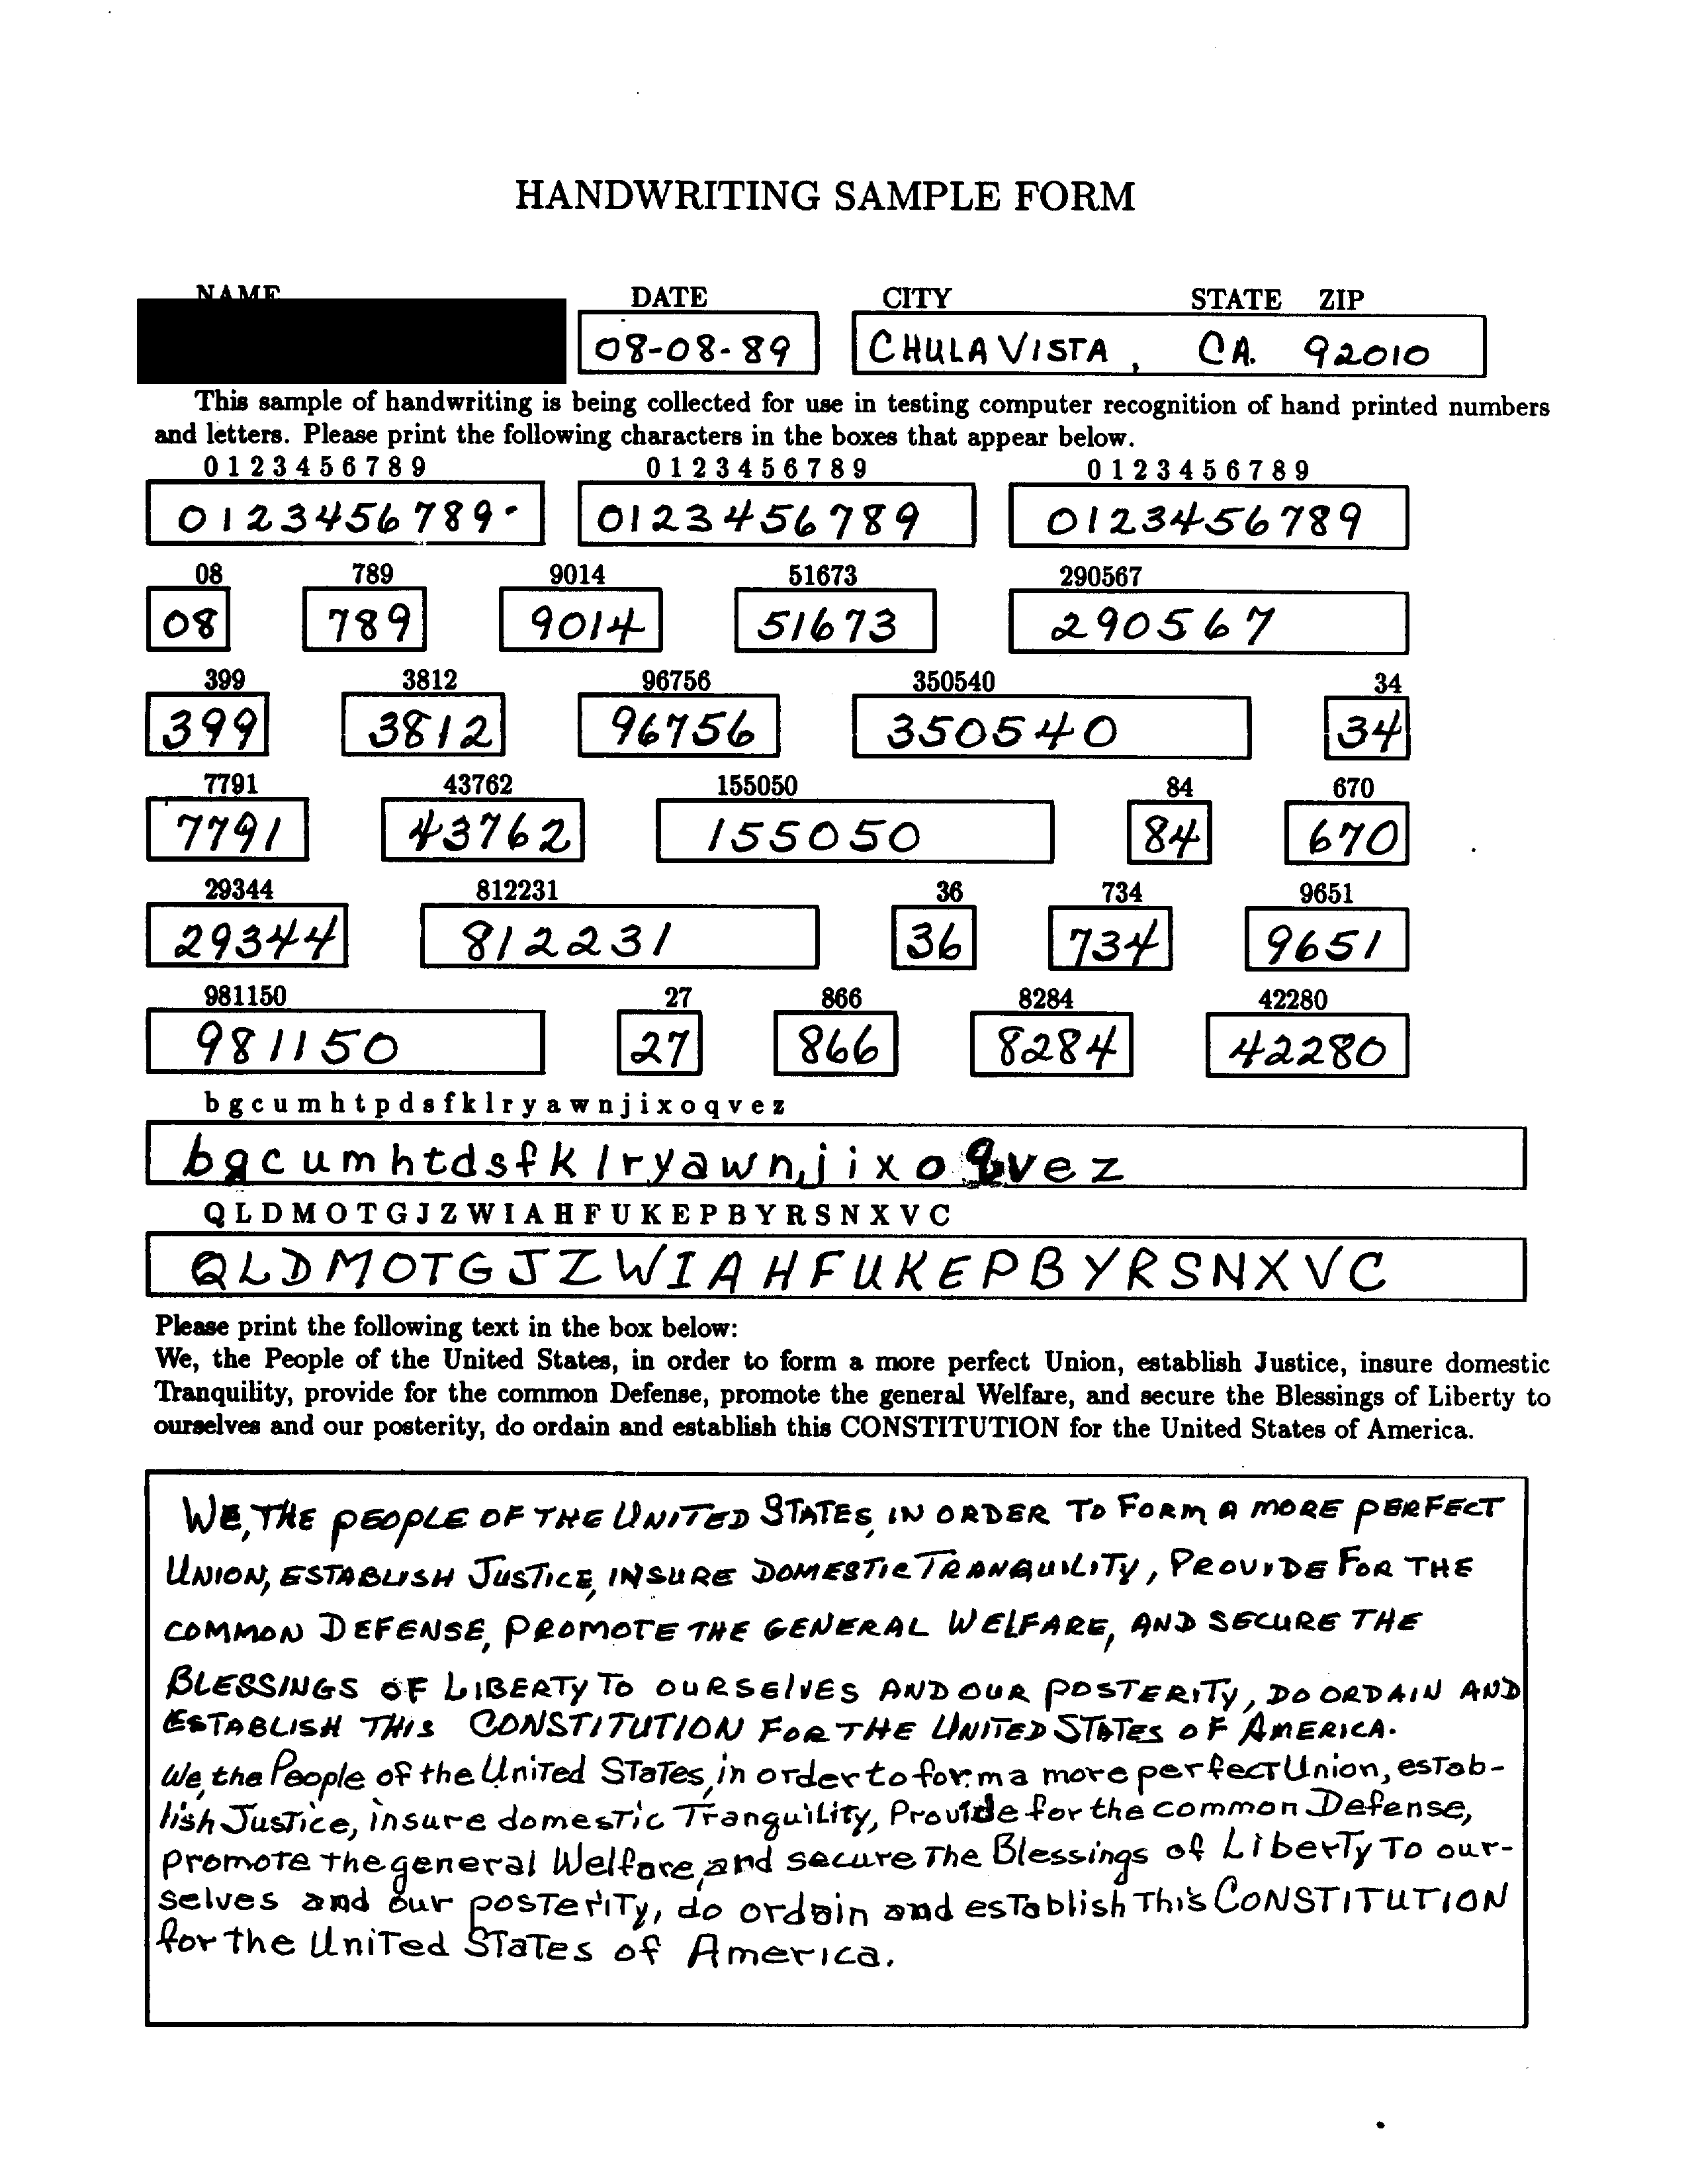 HANDWRITING SAMPLE FORM
NAME DATE CITY STATE ZIP
08-08-89 CHULA VISTA, CA. 92010
This sample of handwriting is being collected for use in testing computer recognition of hand printed numbers
and letters. Please print the following characters in the boxes that appear below.
0 1 2 3 4 5 6 7 8 9 0 1 2 3 4 5 6 7 8 9 0 1 2 3 4 5 6 7 8 9
0123456789 0123456789 0123456789
08 789 9014 51673 290567
08 789 9014 51673 290567
399 3812 96756 350540 34
399 3812 96756 350540 34
7791 43762 155050 84 670
7791 43762 155050 84 670
29344 812231 36 734 9651
29344 812231 36 734 9651
981150 27 866 8284 42280
981150 27 866 8284 42280
b g c u m h t p d s f k l r y a w n j i x o q v e z
b g c u m h t d s f k l r y a w n j i x o q v e z
Q L D M O T G J Z W I A H F U K E P B Y R S N X V C
Q L D M O T G J Z W I A H F U K E P B Y R S N X V C
Please print the following text in the box below:
We, the People of the United States, in order to form a more perfect Union, establish Justice, insure domestic
Tranquility, provide for the common Defense, promote the general Welfare, and secure the Blessings of Liberty to
ourselves and our posterity, do ordain and establish this CONSTITUTION for the United States of America.
WE, THE PEOPLE OF THE UNITED STATES, IN ORDER TO FORM A MORE PERFECT
UNION, ESTABLISH JUSTICE, INSURE DOMESTIC TRANQUILITY, PROVIDE FOR THE
COMMON DEFENSE, PROMOTE THE GENERAL WELFARE, AND SECURE THE
BLESSINGS OF LIBERTY TO OURSELVES AND OUR POSTERITY, DO ORDAIN AND
ESTABLISH THIS CONSTITUTION FOR THE UNITED STATES OF AMERICA.
We, the People of the United States, in order to form a more perfect Union, estab-
lish Justice, insure domestic Tranquility, Provide for the common Defense,
promote the general Welfare, and secure The Blessings of Liberty To our-
selves and our posterity, do ordain and establish This CONSTITUTION
for the United States of America.